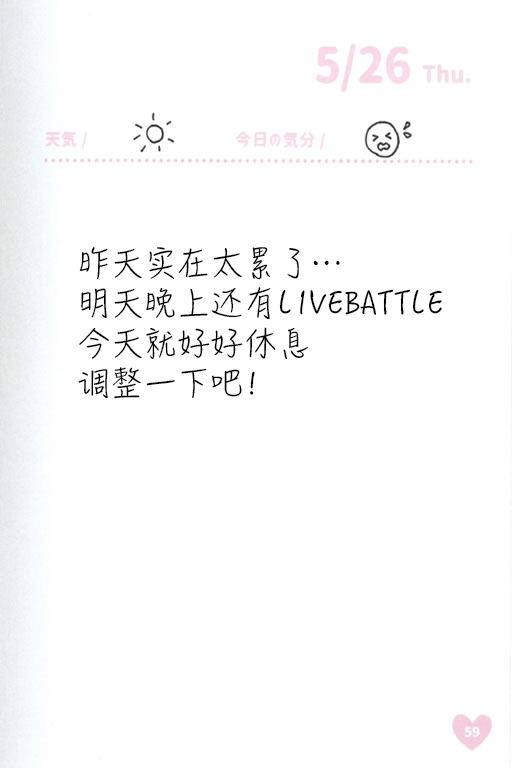 5/26 Thu.
天気 / 今日の気分 /
昨天实在太累了…
明天晚上还有LIVEBATTLE
今天就好好休息
调整一下吧!
59